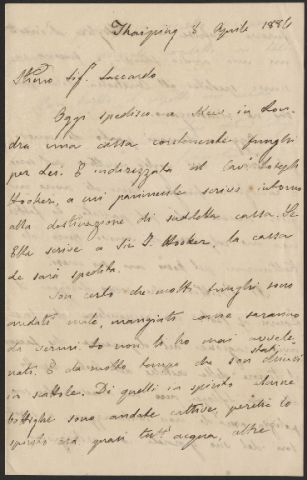 Thaiping 8 Aprile 1886
Stimo Sigr. Saccardo
Oggi spedisco a Kew in Lon-
dra una cassa contenente funghi
per Lei. È indirizzata al Cavr. Joseph
Hooker, a cui parimente scrivo intorno
alla destinazione di suddetta cassa. Se
Ella scrive a Sir J. Hooker, la cassa
Le sarà spedita.
Son certo che molti funghi sono
andati male, mangiati come saranno
da vermi. Io non li ho mai avvele-
nati. È da molto tempo che son stati chiusi
in scattole. Di quelli in spirito alcune
bottiglie sono andate cattive, perchè lo
spirito era quasi tutt' acqua, altre